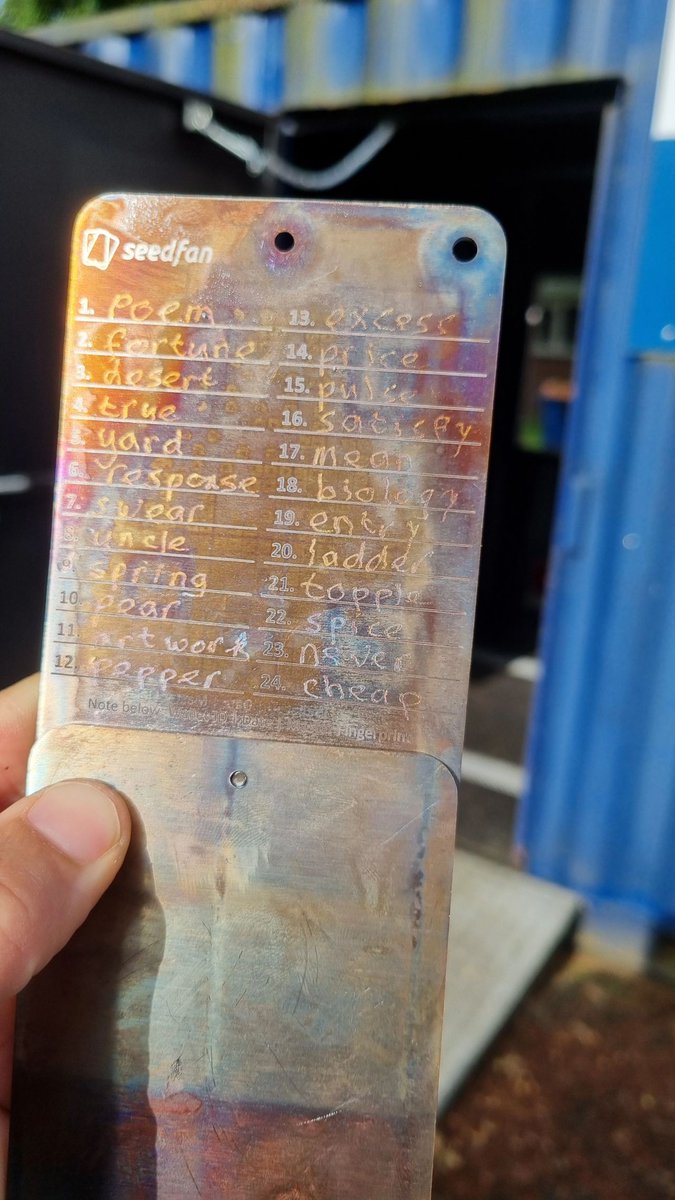 seedfan
1. poem
2. fortune
3. desert
4. true
5. yard
6. response
7. swear
8. uncle
9. spring
10. pear
11. artwork
12. pepper
13. excess
14. price
15. pulse
16. satisfy
17. mean
18. biology
19. entry
20. ladder
21. topple
22. spice
23. never
24. cheap
Note below
Fingerprint